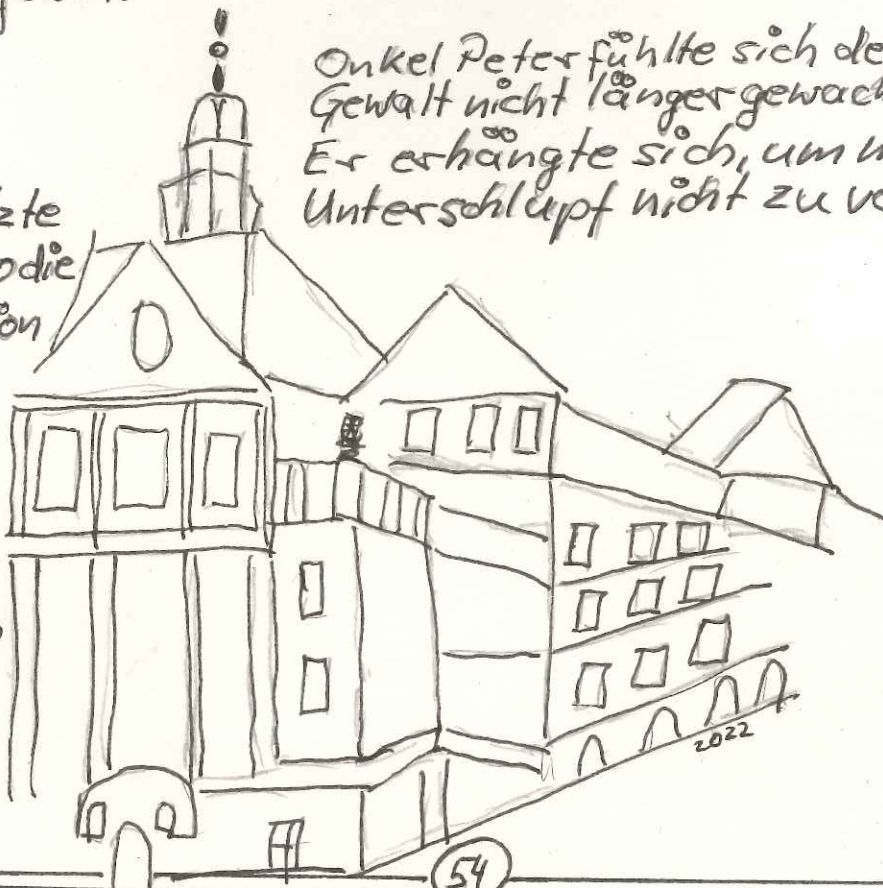 Onkel Peter fühlte sich de
Gewalt nicht länger gewach
Er erhängte sich, um
Unterschlupf nicht zu
zte
odie
ion
2022
54